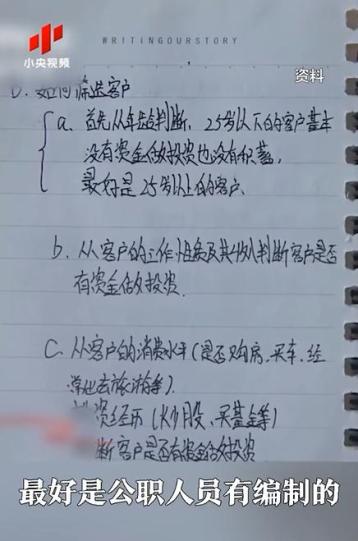 WRITINGOURSTORY
小央视频
资料
如何筛选客户
a、首先从年龄判断，25岁以下的客户基本
没有资金做投资也没有积蓄，
最好是25岁以上的客户、
b、从客户的工作性质及其收入判断客户是否
有资金做投资.
C、从客户的消费水平(是否购房、买车、经
常出去旅游等)、
资经历(炒股、买基金等)
断客户是否有资金做投资
最好是公职人员有编制的